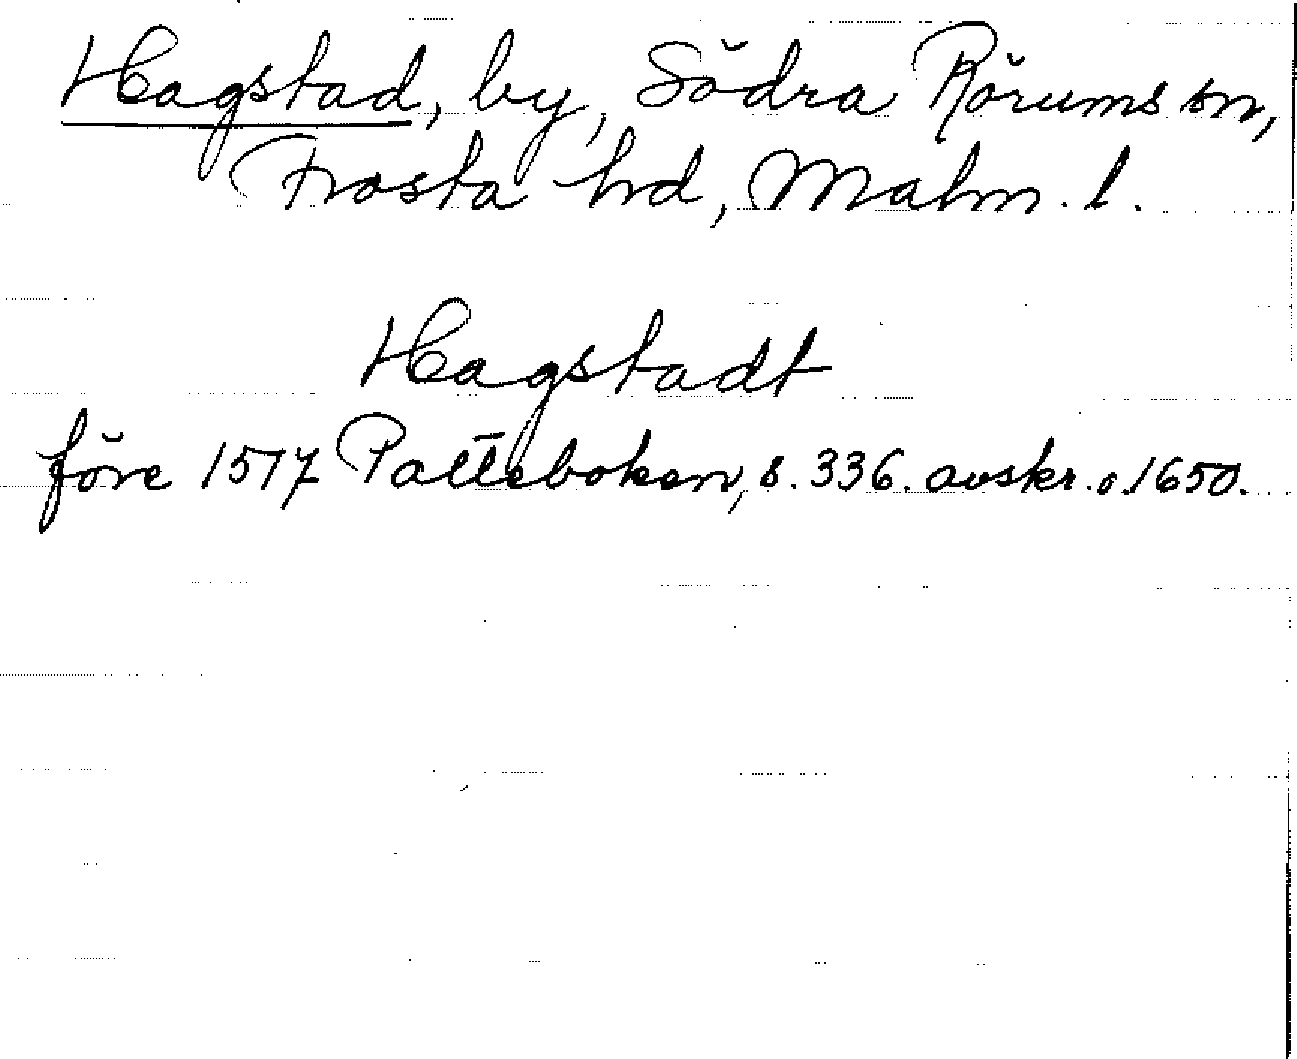 Hagstad, by, Södra Rörums sn,
Frosta hd, Malm. l.
Hagstadt
före 1517 Palteboken, s. 336. avskr. o. 1650.